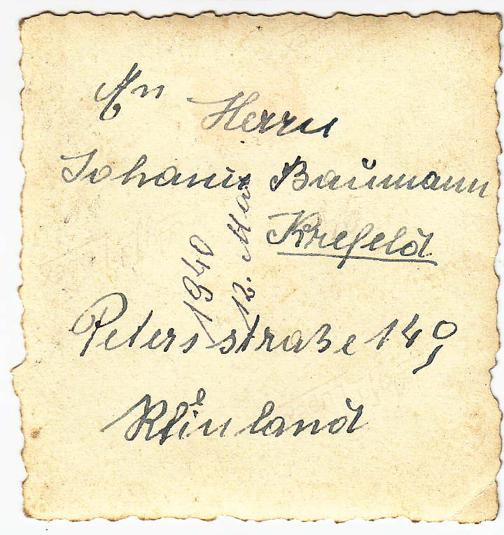 An
Herrn
Johann Baumann
Krefeld
1940
12. Mai
Petersstraße 149
Rheinland